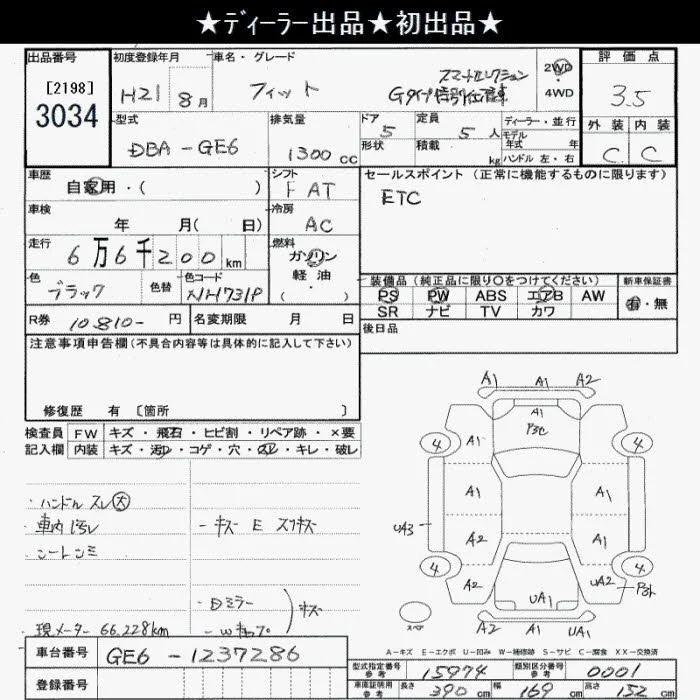 ★ディーラー出品★初出品★
出品番号 初度登録年月 車名・グレード 評価点
[2198]
3034
H21 8月
フィット
スマートセレクション
Gタイプ
2WD
4WD
3.5
型式 排気量 ドア 定員 ディーラー・並行 外装 内装
DBA-GE6 1300cc 5 5人 モデル
年式 年
形状 積載 kg ハンドル 左・右 C C
車歴 シフト セールスポイント(正常に機能するものに限ります)
自家用・( ) FAT ETC
車検 冷房
年 月( 日) AC
走行 燃料
6万6千200km ガソリン
軽油
( )
色 色替 色コード 装備品(純正品に限り○をつけてください) 新車保証書
ブラック NH731P PS PW ABS エアB AW 有・無
SR ナビ TV カワ
R券 10,810- 円 名変期限 月 日 後日品
注意事項申告欄(不具合内容等は具体的に記入して下さい)
修復歴 有 [箇所 ]
検査員 FW キズ・飛石・ヒビ割・リペア跡・×要
記入欄 内装 キズ・汚レ・コゲ・穴・スレ・キレ・破レ
・ハンドル スレ大
・車内 汚レ
・シートシミ
-キズ E スリキズ
・Dミラー
-Wキャップ
キズ
・現メーター 66.228km
A1 A1 A2
A1
P3C
4 A1 A1 4
A1 A1
UA3
A2 A1
4 4
A2 UA1 UA2
A2 A1 UA1
スペア
A-キズ E-エクボ U-凹み W-補修跡 S-サビ C-腐食 XX-交換済
車台番号 GE6-1237286
登録番号
型式指定番号 参考 15974 類別区分番号 参考 0001
車庫証明用 参考 長さ 390 cm 幅 169 cm 高さ 152 cm